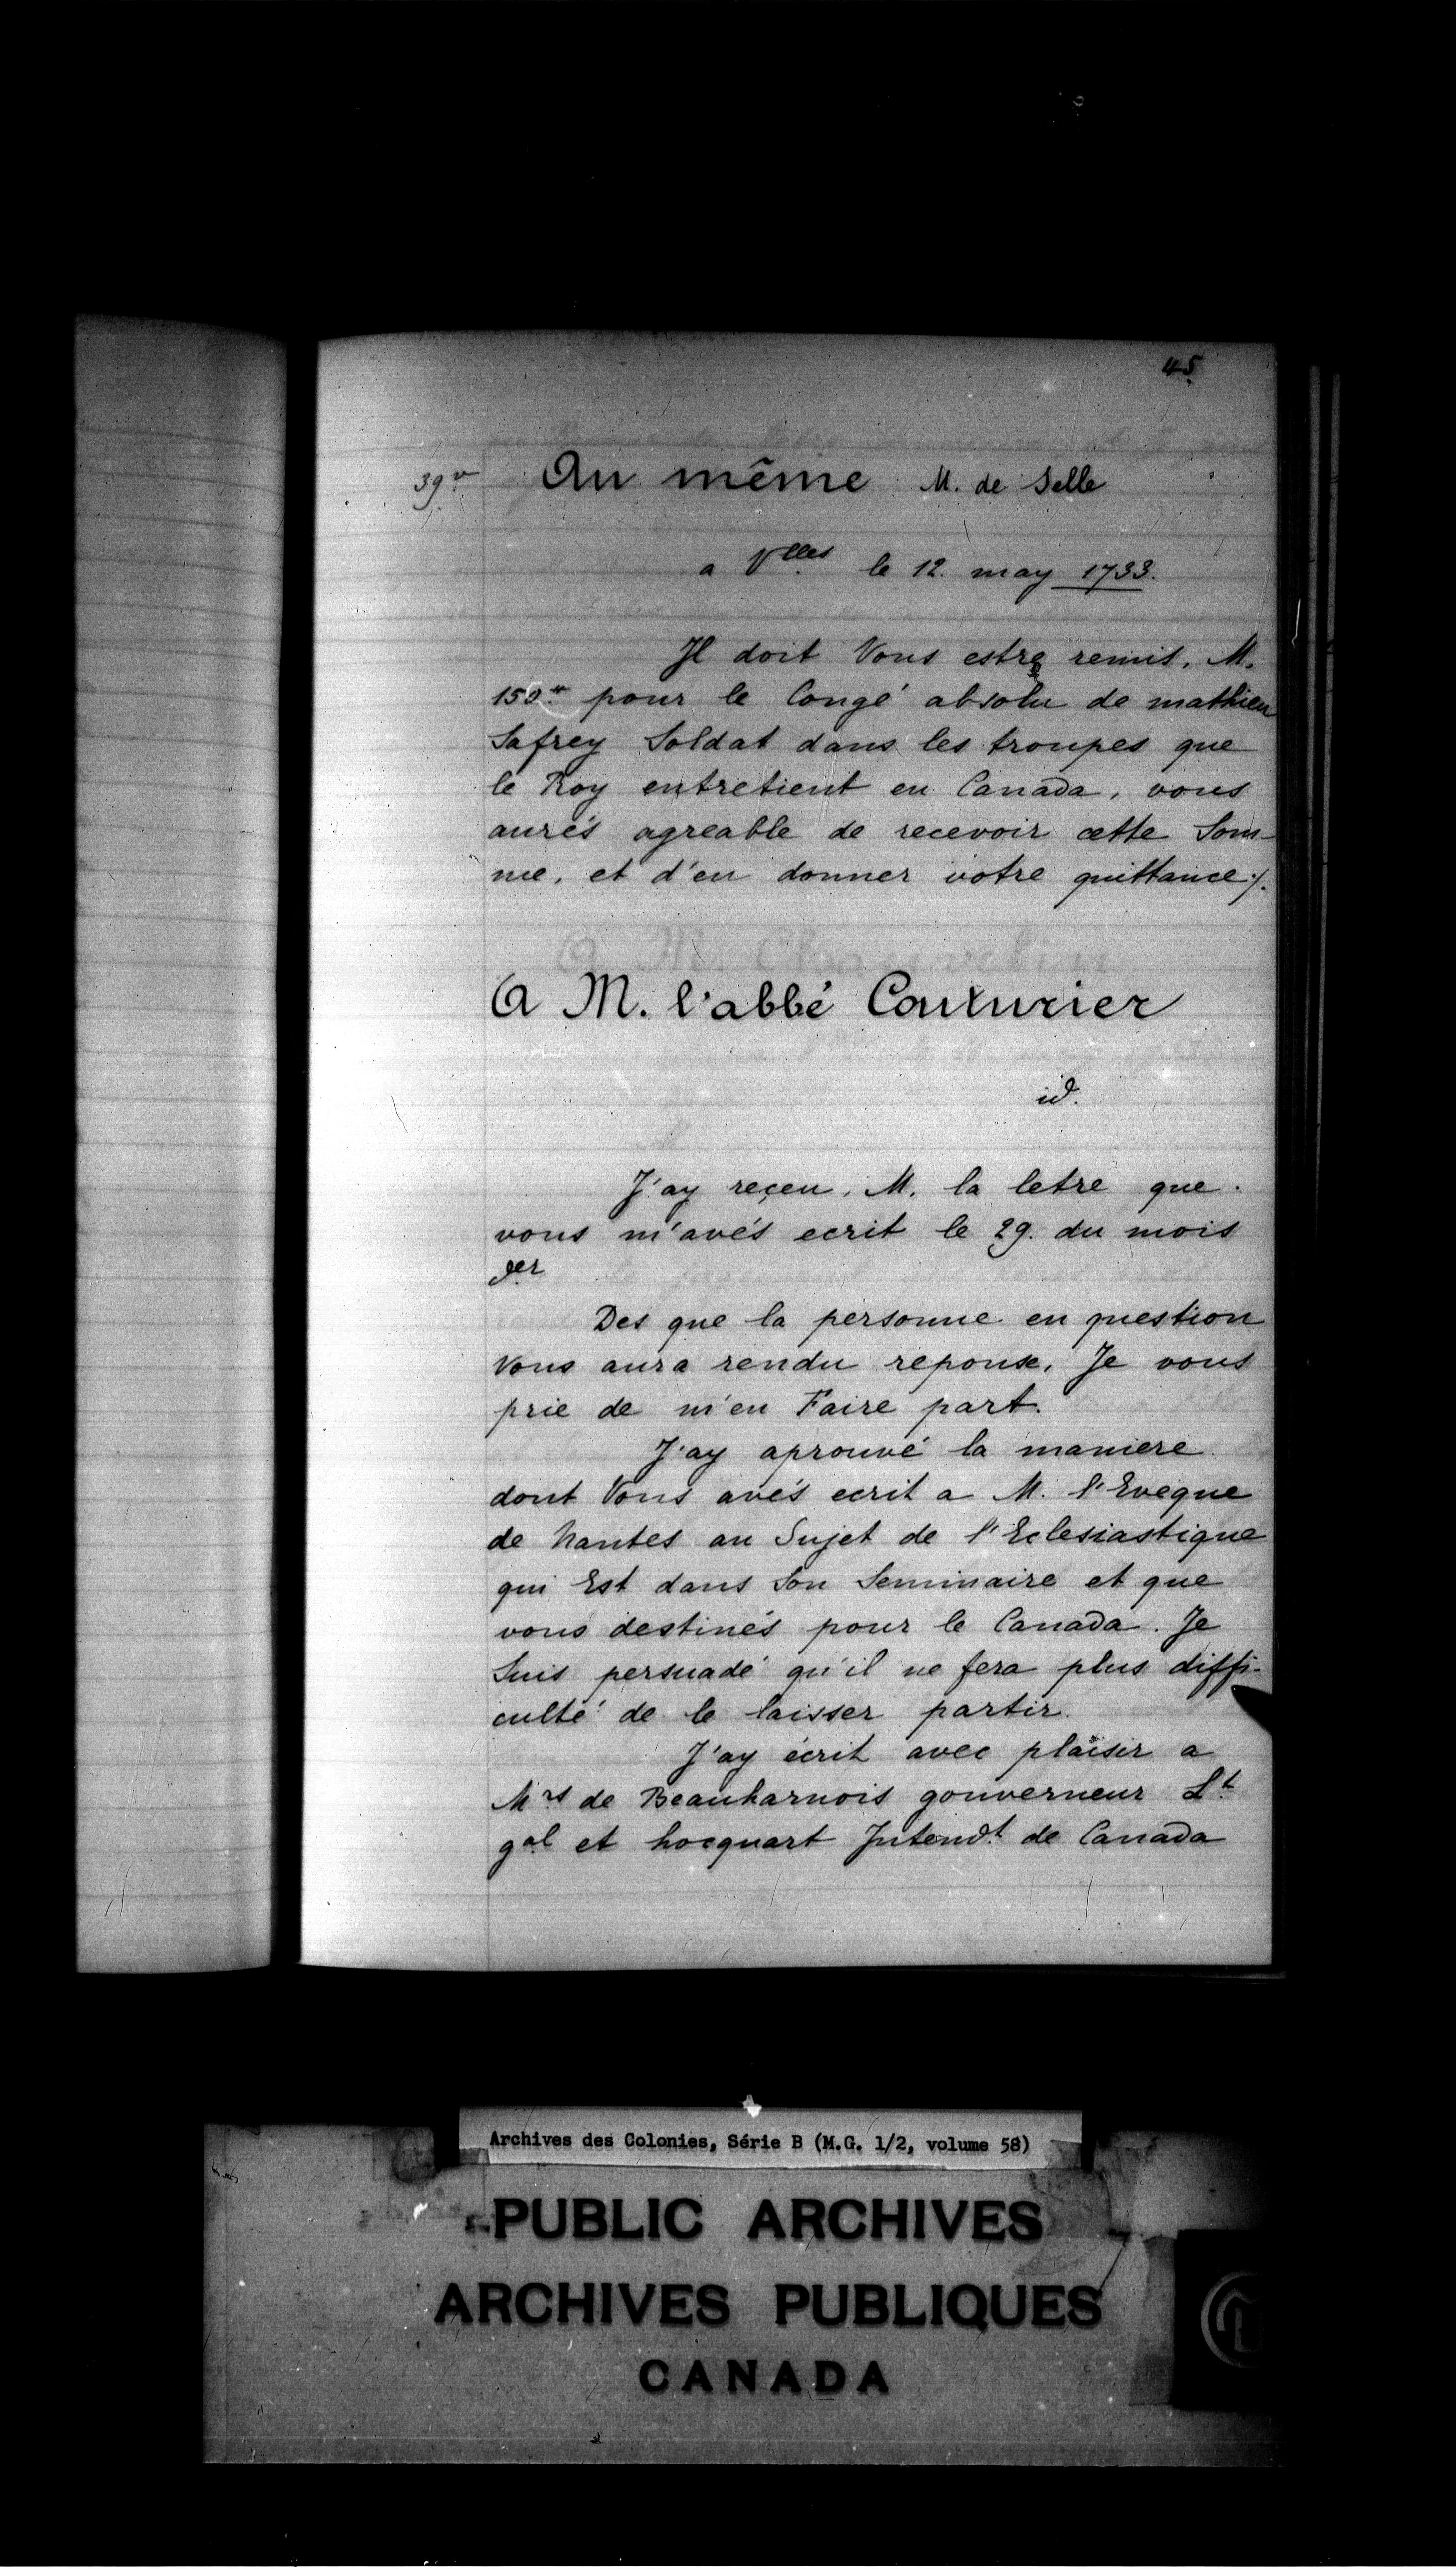 45
39 v. Au même M. de Selle
a Vlles le 12. may 1733.
Il doit Vous estre remis, M.
150# pour le Congé absolu de mathieu
Safrey Soldat dans les troupes que
le Roy entretient en Canada, vous
aurés agreable de recevoir cette Som-
me, et d'en donner votre quittance ./.
A M. l'abbé Couturier
id.
J'ay reçeu, M. la letre que
vous m'avés ecrit le 29. du mois
der
Des que la personne en question
Vous aura rendu reponse, Je vous
prie de m'en Faire part.
J'ay aprouvé la maniere
dont Vous avés ecrit a M. l'Eveque
de Nantes au Sujet de l'Eclesiastique
qui Est dans Son Seminaire et que
vous destinés pour le Canada. Je
Suis persuadé qu'il ne fera plus diffi-
culté de le laisser partir.
J'ay écrit avec plaisir a
Mrs de Beauharnois gouverneur Lt
gal et hocquart Intendt de Canada
Archives des Colonies, Série B (M.G. 1/2, volume 58)
PUBLIC ARCHIVES
ARCHIVES PUBLIQUES
CANADA